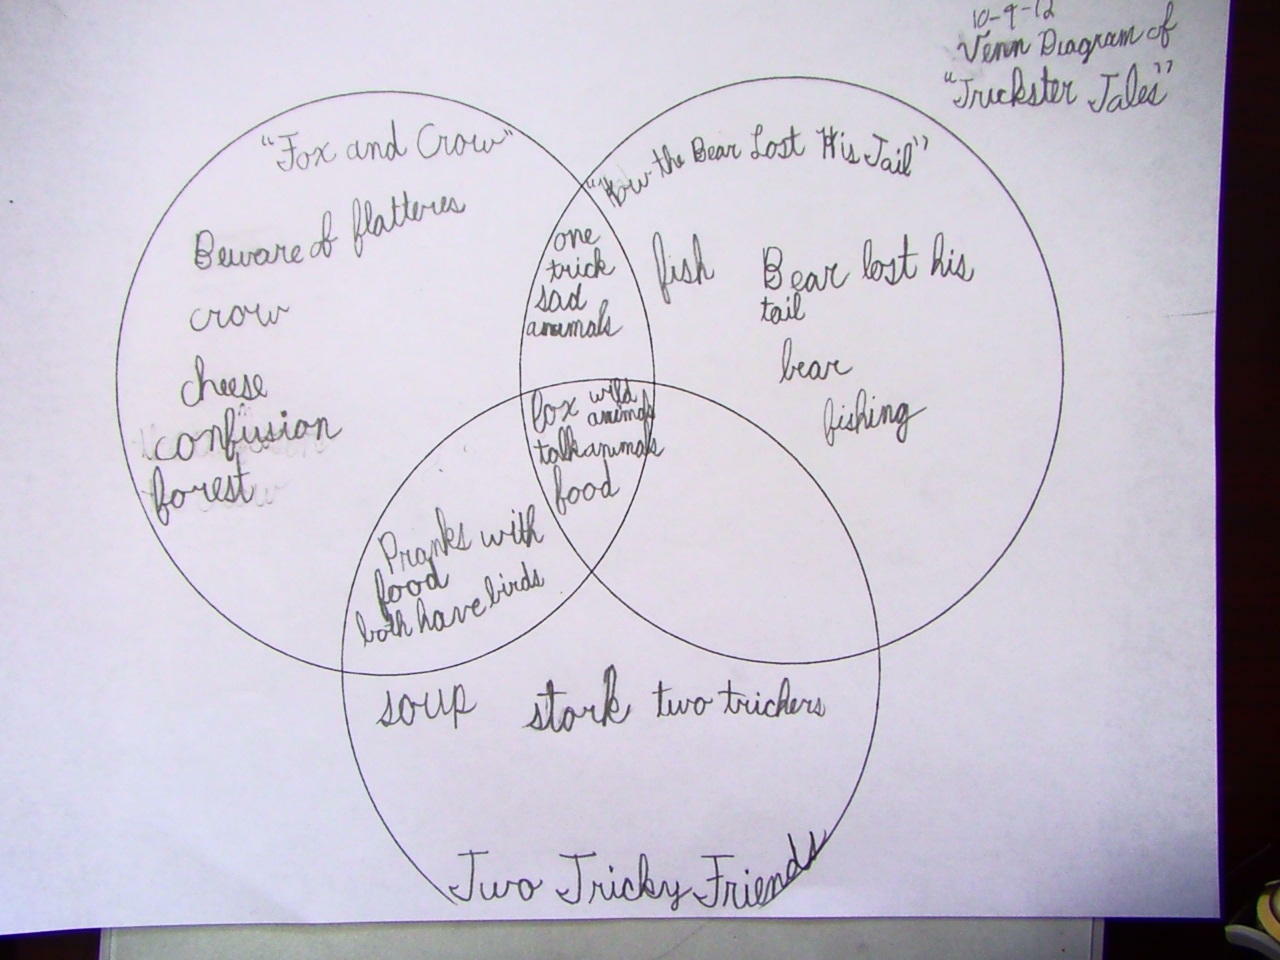 10-9-12
Venn Diagram of
"Trickster Tales"
"Fox and Crow"
Beware of flatteres
crow
cheese
confusion
forest
"How the Bear Lost His Tail"
one
trick
sad
animals
fish
Bear lost his
tail
bear
fishing
fox wild
animals
talk animals
food
Pranks with
food
both have birds
soup stork two trickers
Two Tricky Friends